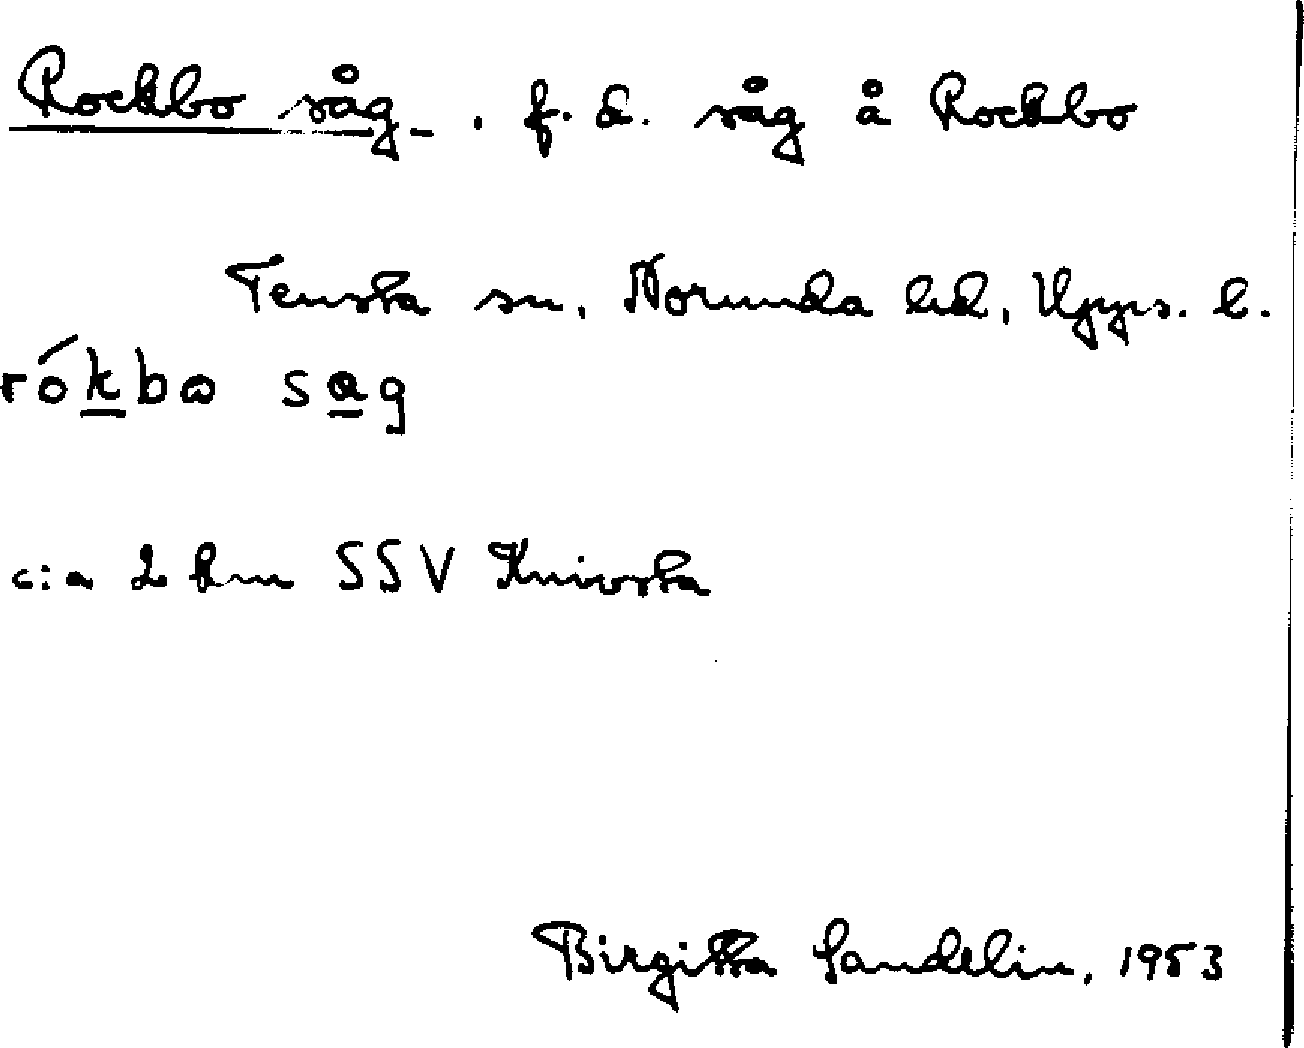 Rockbo såg. f.d. såg å Rockbo
Tensta sn, Norunda hd, Upps. l.
rókbo sag
c:a 2 km SSV Knivsta
Birgitta Sandelin, 1953